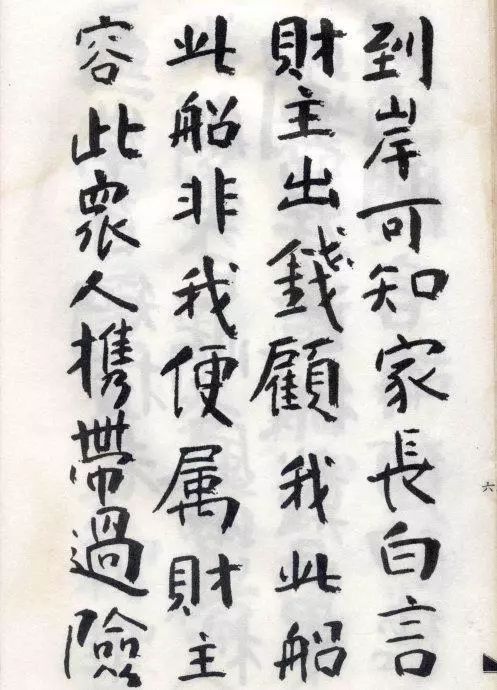 到岸可知家長白言
財主出錢顧我此船
此船非我便属財主
容此衆人携帶過險
六